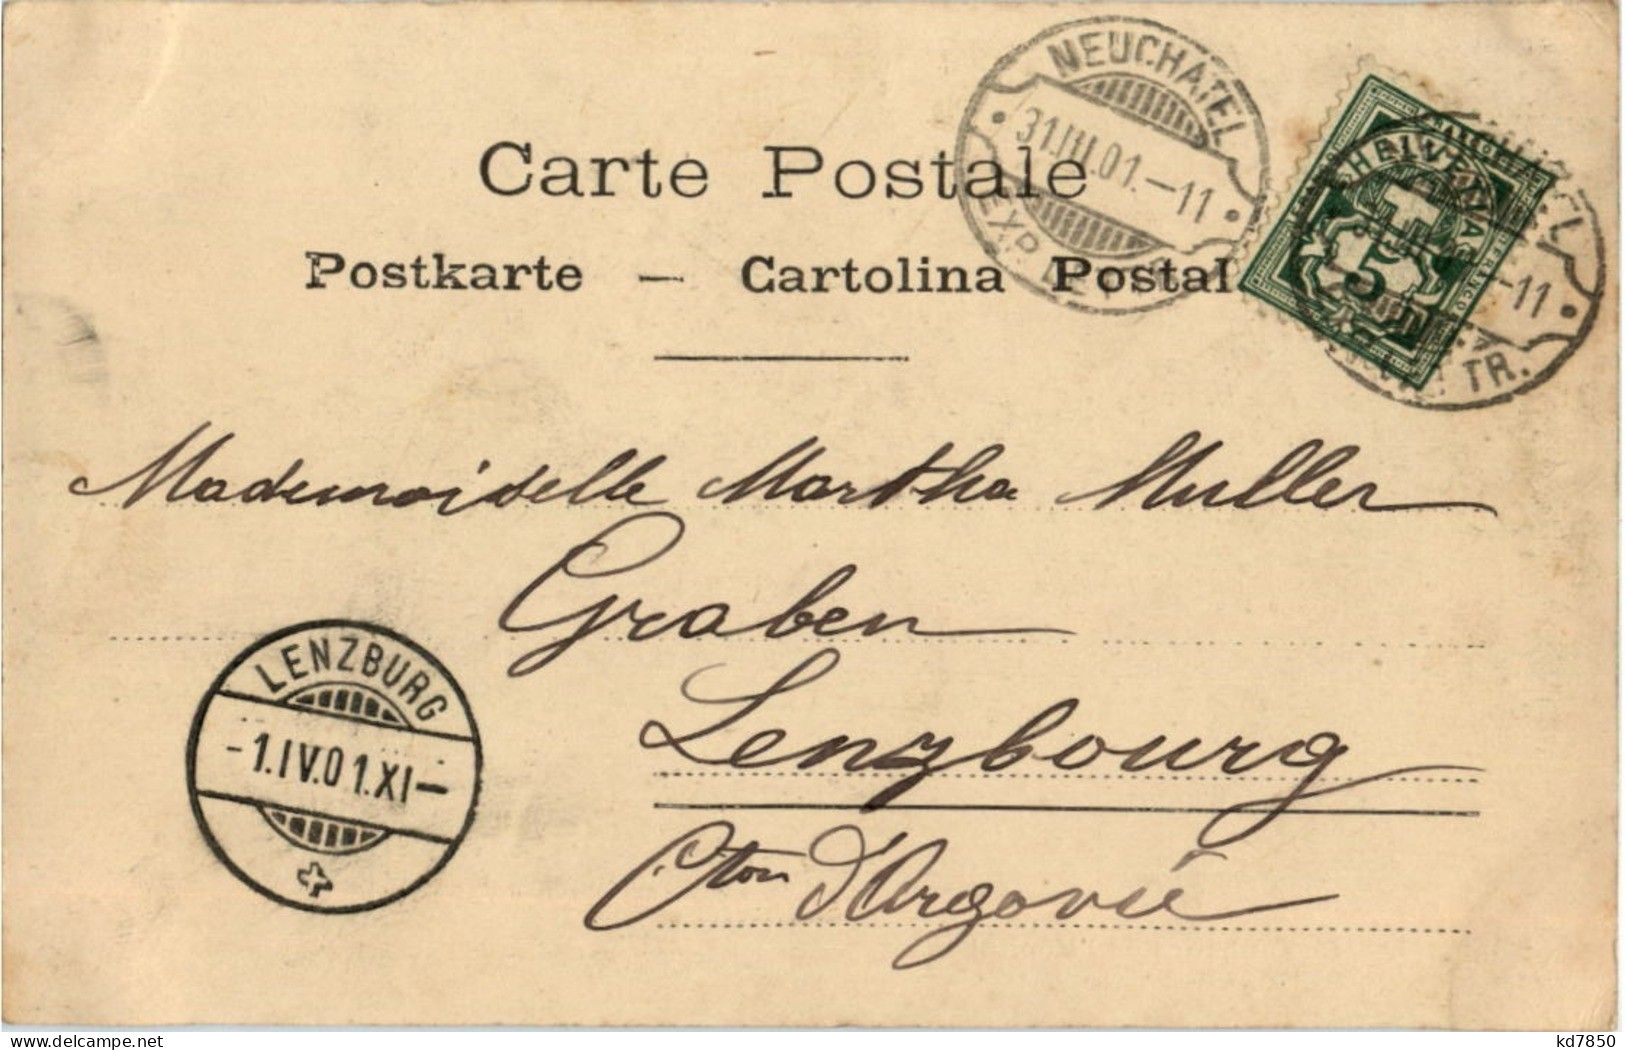 Carte Postale
Postkarte — Cartolina Postal
NEUCHATEL
31.III.01.—11
EXP. LETTR.
HELVETIA
5
FRANCO
—11
TR.
Mademoiselle Martha Muller
Graben
Lenzbourg
Cton d'Argovie
LENZBURG
-1.IV.01.XI—
kd7850